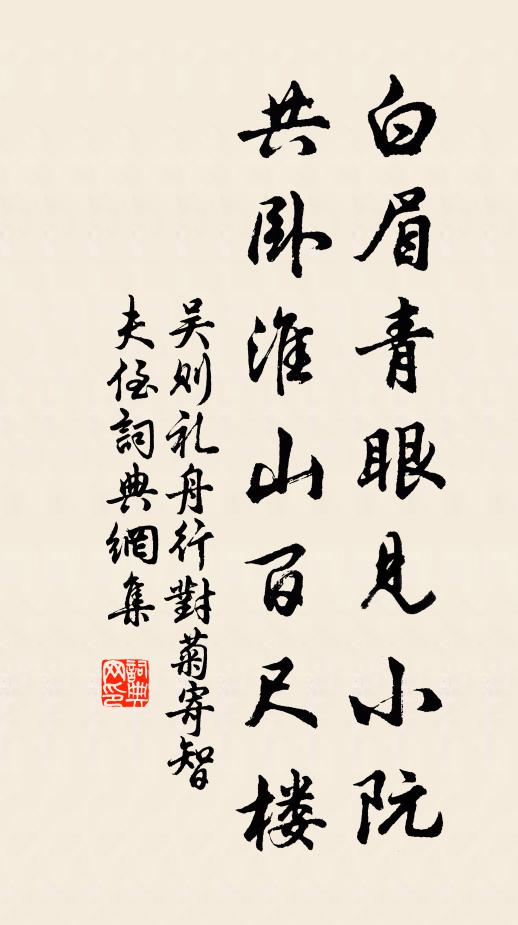 白眉青眼見小阮
共卧淮山百尺楼
吴则礼舟行對菊寄智
夫侄詞典網集
詞典
网印